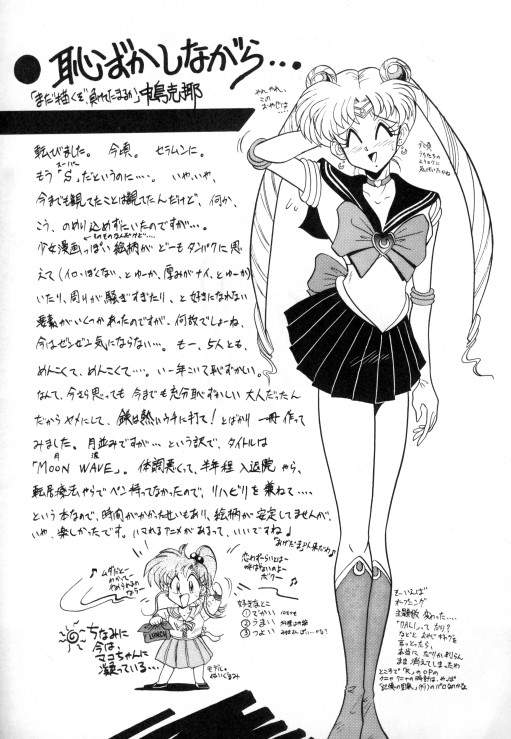 恥ずかしながら…
「まだ描くぞ、負けてたまるか」中島克耶
転びました。今頃。セラムンに。
スーパー
もう“S”だというのに…。いやいや、
今までも観てたことは観てたんだけど、何か、
こう、のめり込めずにいたのですが…。
少女漫画っぽい絵柄がどーもタンパクに思
えて(イロっぽくない、とゆーか、厚みがナイ、とゆーか)
いたり、周りが騒ぎすぎたり、と好きになれない
要素がいくつかあったのですが、何故でしょーね、
今はゼンゼン気にならない…。もー、5人とも、
めんこくて、めんこくて…。いー年こいて恥ずかしい。
なんて、今さら思っても今までも充分恥ずかしい大人だったん
だからヤメにして、鉄は熱いウチに打て!とばかり一冊作って
みました。月並みですが…という訳で、タイトルは
月 波
「MOON WAVE」。体調悪くって、半年程入退院やら、
転居療法やらでペン持ってなかったので、リハビリを兼ねて…
という本なので、時間がかかったせいもあり、絵柄が安定してませんが、
いや、楽しかったです。ハマれるアニメがあるって、いいですね♪
ムダだと
わかって
やめられるの
なら〜
恋わずらいとは
呼ばないのよー
ボクー
LUNCH
好きなとこ
①でかい
②うまい
③つよい
ちなみに
今は、
マコちゃんに
凝っている…
そーいえば
オープニング
主題歌 変わった…
などと
言っとったら、
本当に
まま 消えてしまった
ところで「R」のOPの